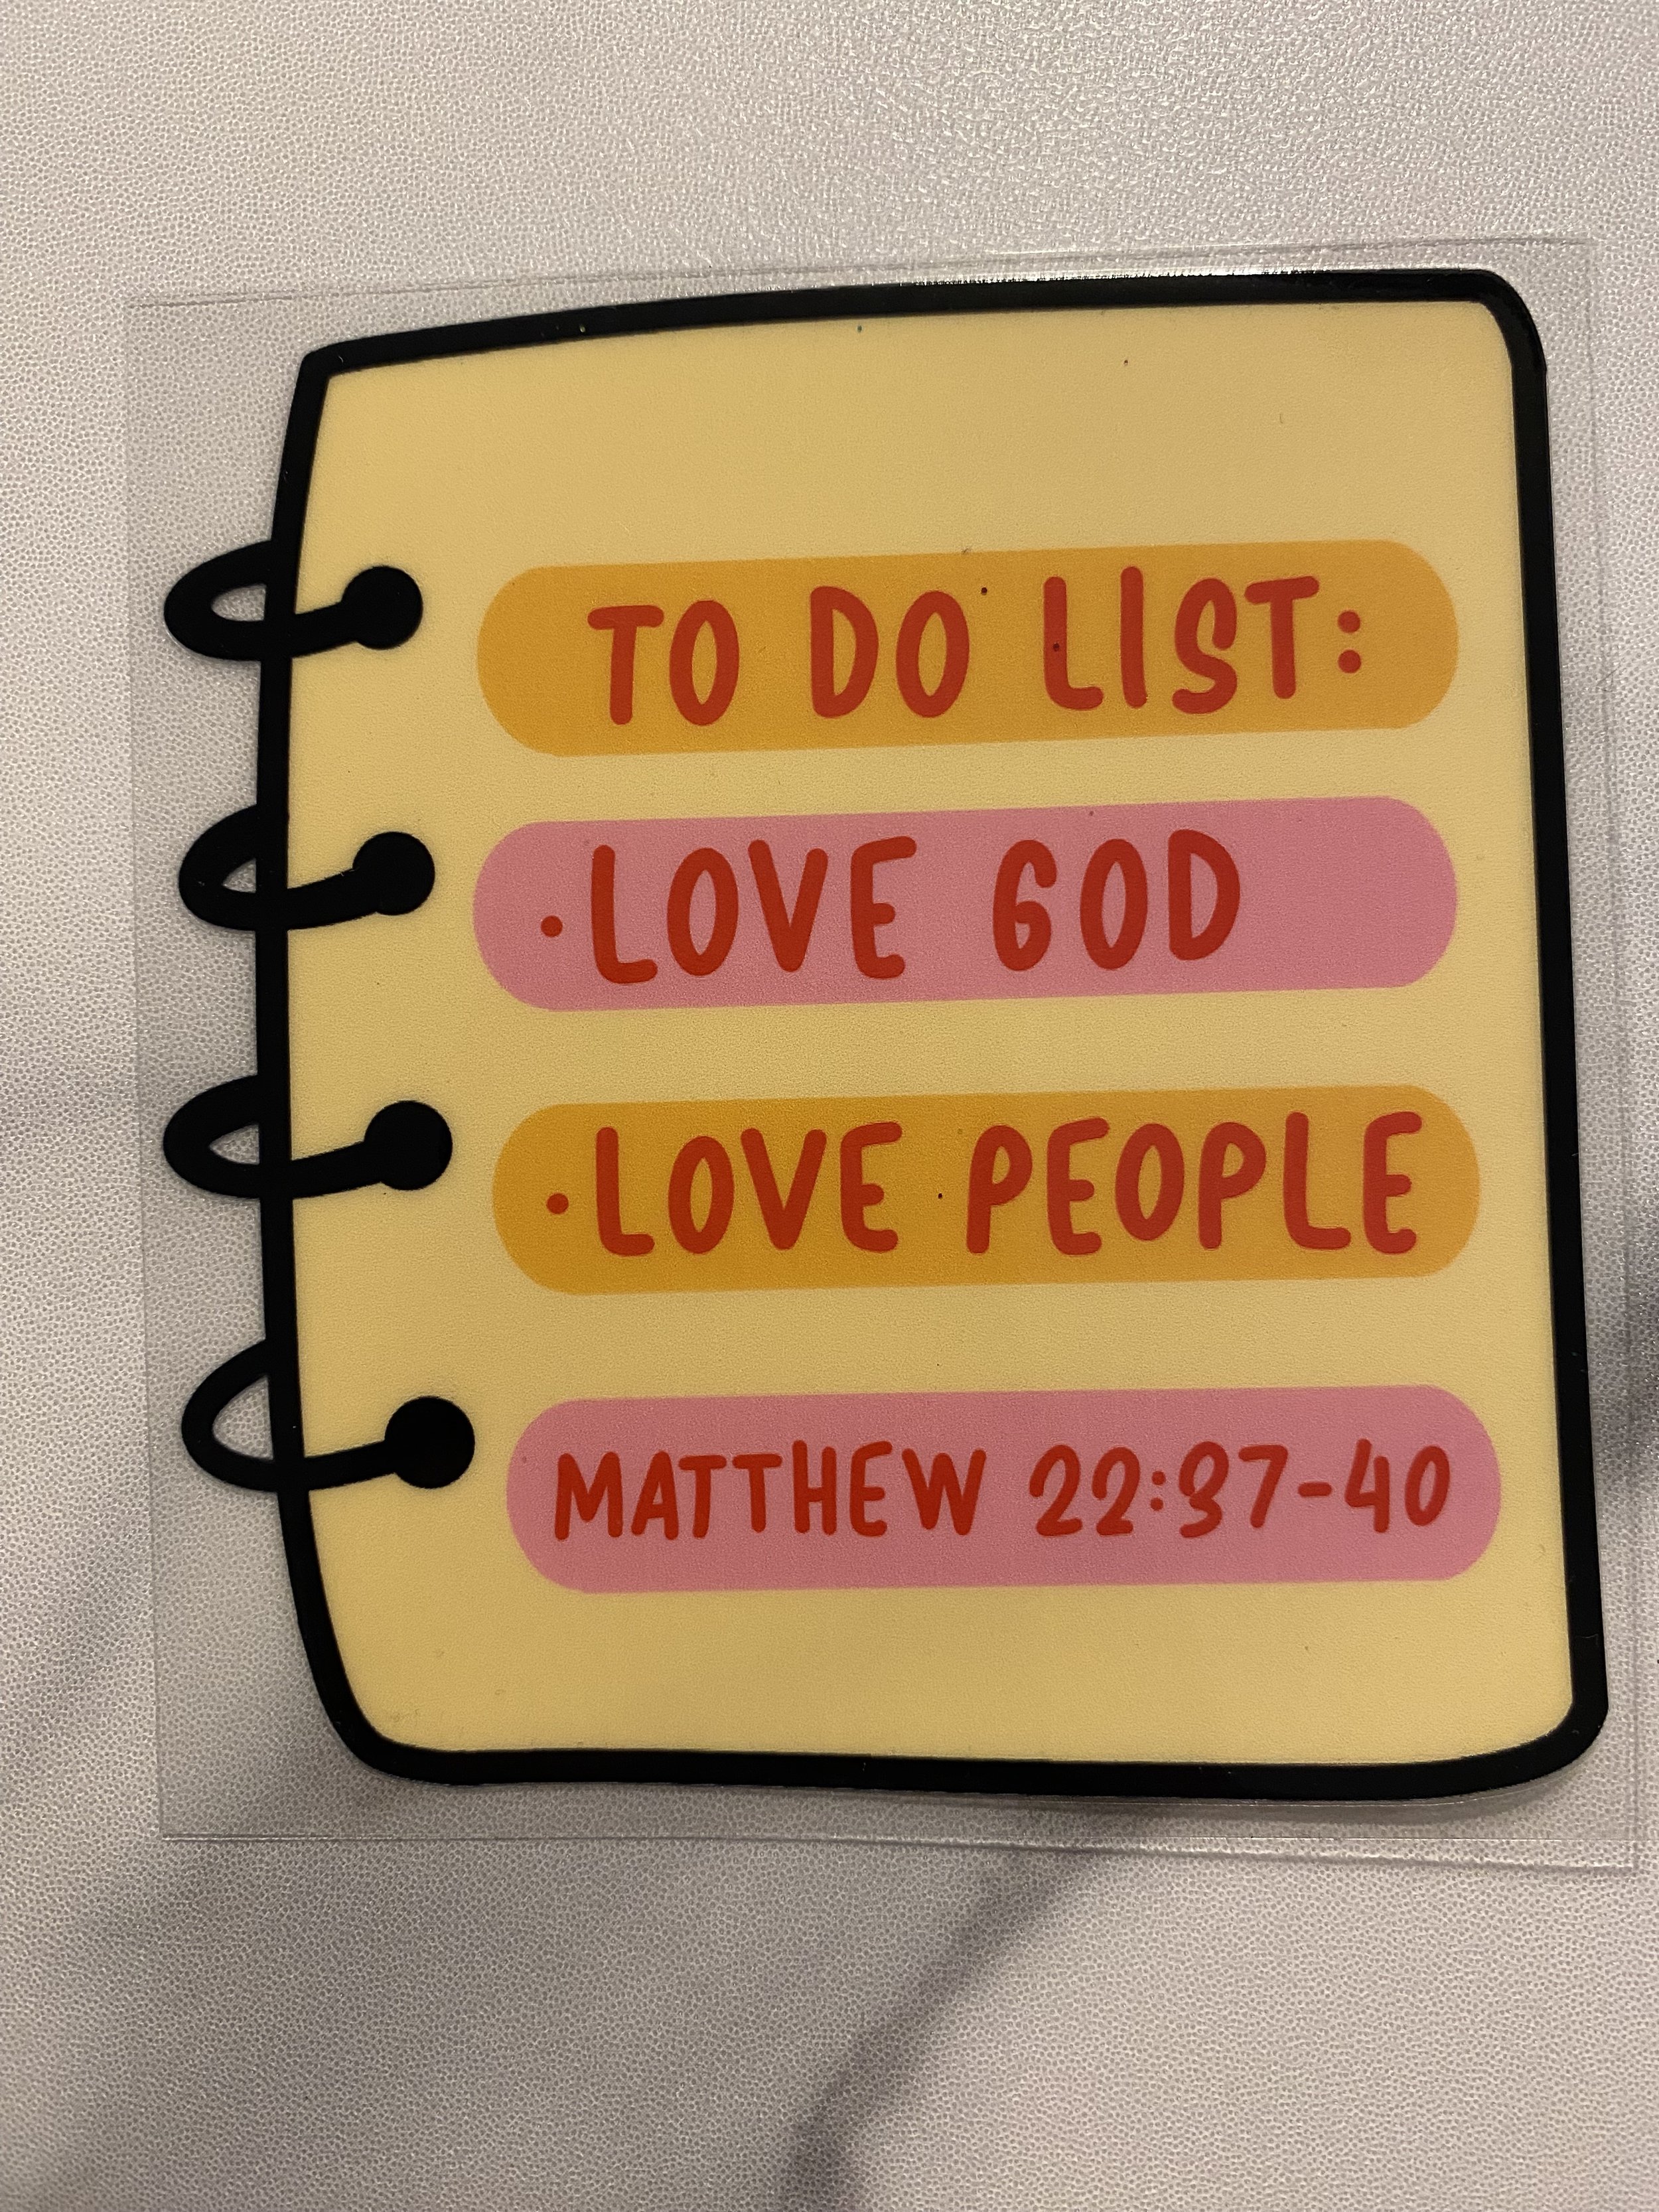 TO DO LIST:
·LOVE GOD
·LOVE PEOPLE
MATTHEW 22:37-40